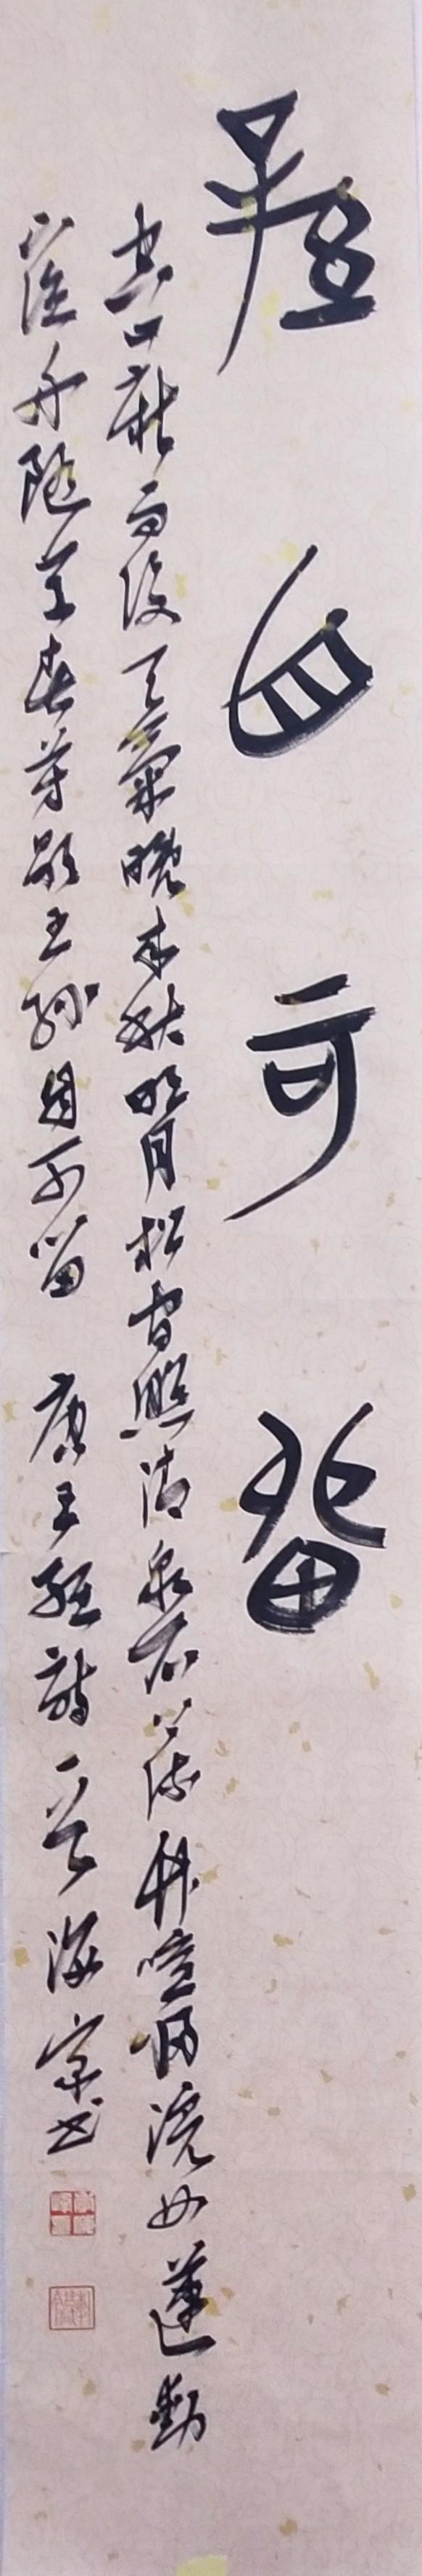 自可留
空山新雨後天氣晚来秋明月松間照清泉石上流竹喧歸浣女蓮動
下漁舟隨意春芳歇王孫自可留 唐王維詩一首 海宗书